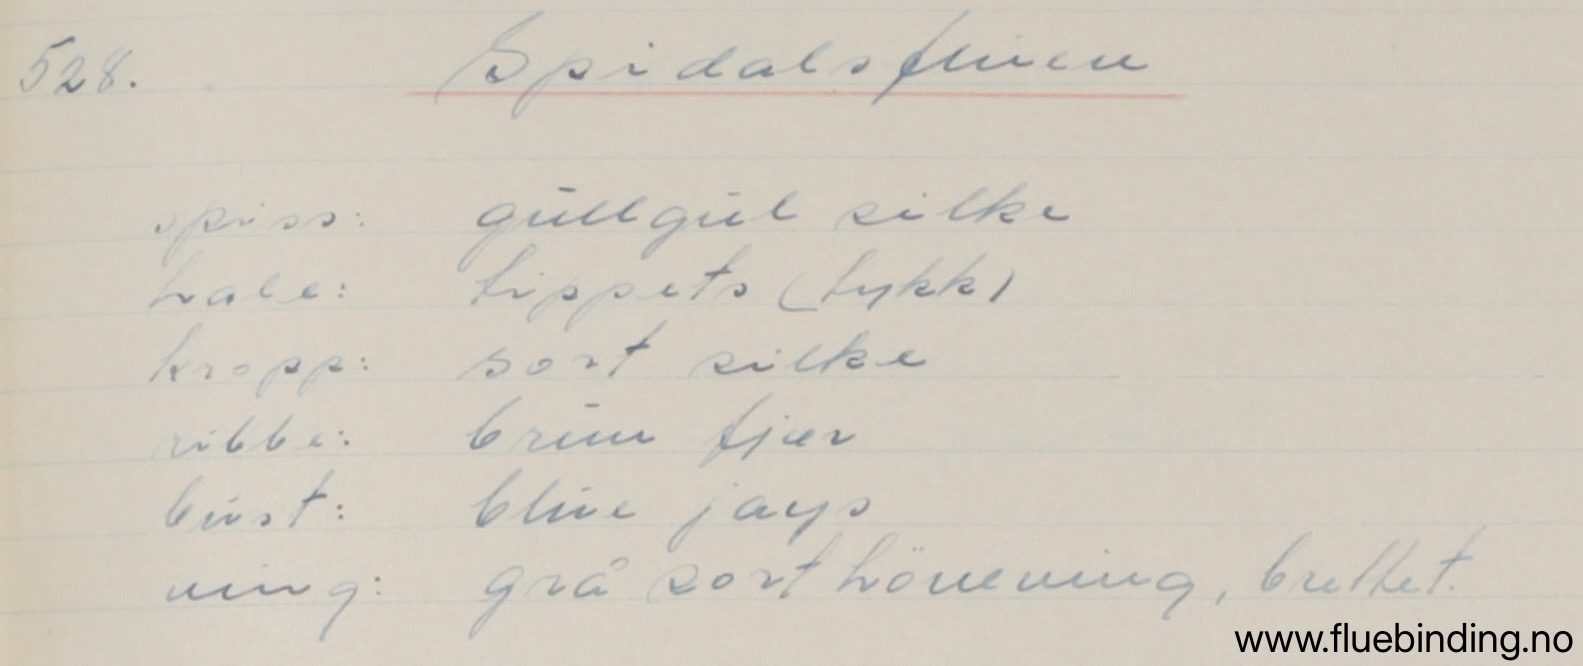 528. Spidalsfluen
spiss: gullgul silke
hale: tippets (tykk)
kropp: sort silke
ribbe: brun fjær
bust: blue jays
ving: grå sort höneving, brettet.
www.fluebinding.no